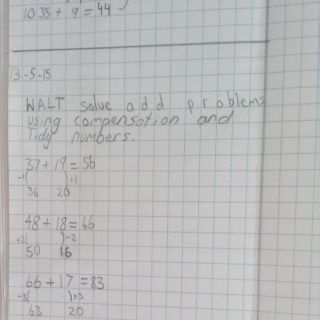 10 35 + 9 = 44
13-5-15
WALT solve add problems
using compensation and
Tidy numbers.
37 + 19 = 56
-1 +1
36 20
48 + 18 = 66
+2 -2
50 16
66 + 17 = 83
-3 +3
63 20